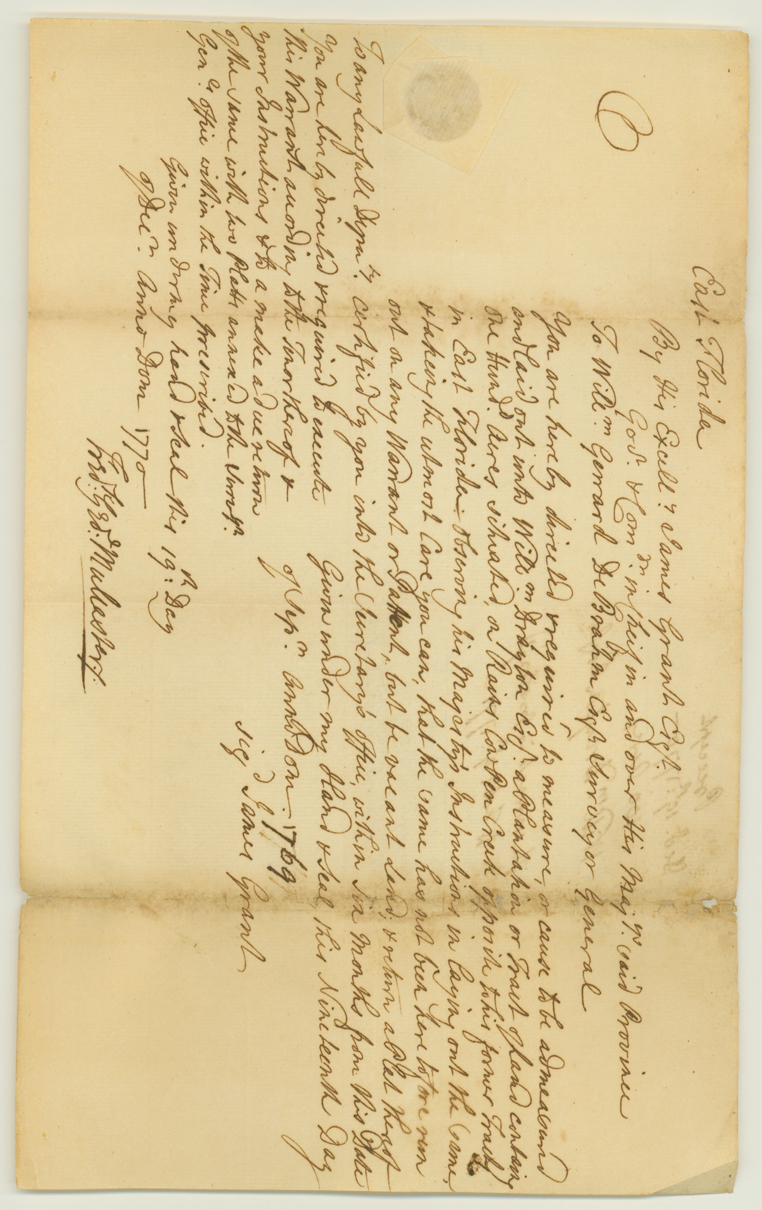 East Florida
By His Excell.y James Grant Esq.r
Gov.r & Com.dr in Cheif in and over His Maj.ys said Province
To Will.m Gerrard De Brahm Esq.r Surveyor General
You are hereby directed & required to measure, or cause to be admeasured
and laid out unto Will.m Drayton Esq.r a Plantation or Tract of Land containg
one Hund.d Acres situated, on Rains CowPen Creek opposite to his former Tract
in East Florida, observing his Majesty's Instructions in laying out the same,
& taking the utmost Care you can, that the same has not been here tofore run
out on any Warrant or Pattent, but be vacant Land, & return a Plat thereof
Certified by you into the Secretary's Office, within Six Months from this Date
Given under my Hand & Seal, this Nineteenth Day
of Sep.r Anno Dom. 1769
sig.d James Grant
To any Lawfull Deputy
You are hereby directed & required to execute
this Warrant according to the Tenor thereof &
your Instructions & to a make a due return
of the same with two Platts annexed to the Survr
Gen.ls Office within the Time prescribed.
Given under my hand & seal this 19.th Day
of Dec.r Anno Dom 1770
Fred: Geo: Mulcaster.